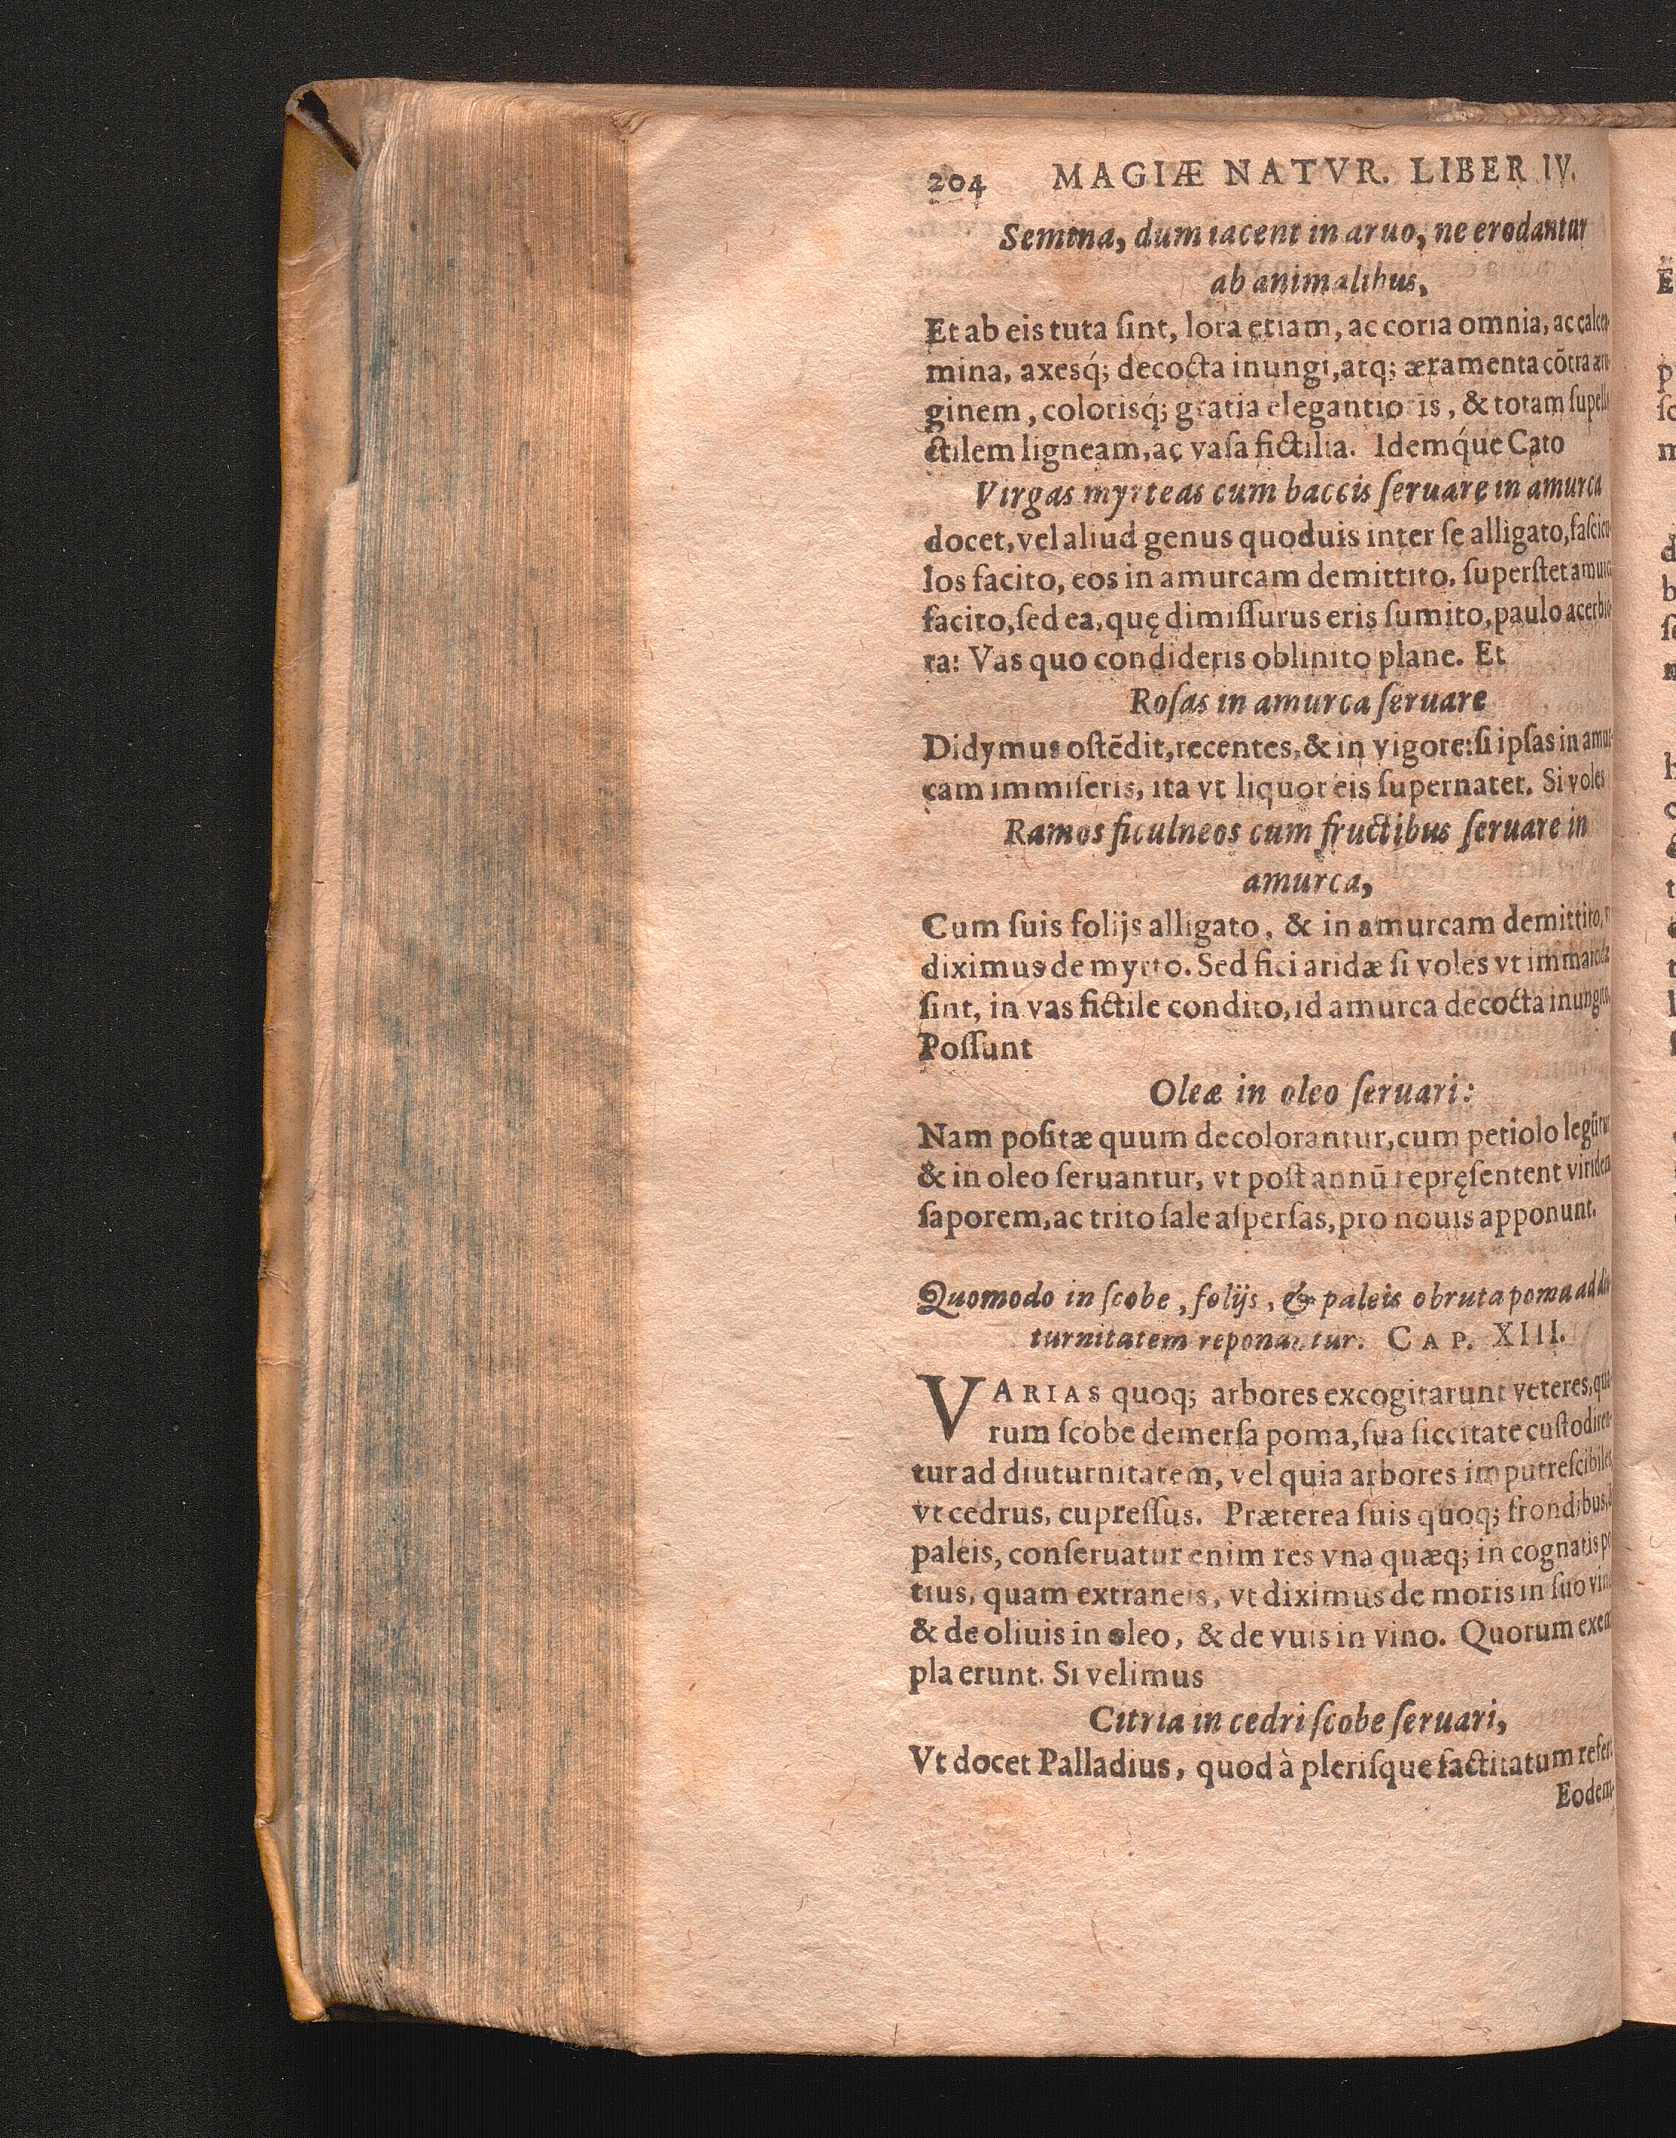 204 MAGIÆ NATVR. LIBER IV.
Semina, dum iacent in aruo, ne erodantur
ab animalibus,
Et ab eis tuta ſint, lora etiam, ac coria omnia, ac calcea-
mina, axesq́; decocta inungi, atq; æramenta cõtra æru-
ginem, colorisq́; gratia elegantioris, & totam ſupelle-
ctilem ligneam, ac vaſa fictilia. Idemq́ue Cato
Virgas myrteas cum baccis ſeruare in amurca
docet, vel aliud genus quoduis inter ſe alligato, faſcicu-
los facito, eos in amurcam demittito, ſuperſtet amurca
facito, ſed ea, quę dimiſſurus eris ſumito, paulo acerbio-
ra: Vas quo condideris oblinito plane. Et
Roſas in amurca ſeruare
Didymus oſtẽdit, recentes, & in vigore: ſi ipſas in amur-
cam immiſeris, ita vt liquor eis ſupernatet. Si voles
Ramos ficulneos cum fructibus ſeruare in
amurca,
Cum ſuis folijs alligato, & in amurcam demittito,
diximus de myrto. Sed fici aridæ ſi voles vt immarcidæ
ſint, in vas fictile condito, id amurca decocta inungito,
Poſſunt
Oleæ in oleo ſeruari:
Nam poſitæ quum decolorantur, cum petiolo legũtur
& in oleo ſeruantur, vt poſt annũ repręſentent viridem
ſaporem, ac trito ſale aſperſas, pro nouis apponunt.
Quomodo in ſcobe, folijs, & paleis obruta poma ad diu-
turnitatem reponantur. CAP. XIII.
VARIAS quoq; arbores excogitarunt veteres, qua-
rum ſcobe demerſa poma, ſua ſiccitate cuſtodiren-
tur ad diuturnitatem, vel quia arbores imputreſcibiles,
vt cedrus, cupreſſus. Præterea ſuis quoq; frondibus,
paleis, conſeruatur enim res vna quæq; in cognatis po-
tius, quam extraneis, vt diximus de moris in ſuo vino
& de oliuis in oleo, & de vuis in vino. Quorum exem
pla erunt. Si velimus
Citria in cedri ſcobe ſeruari,
Vt docet Palladius, quod à pleriſque factitatum refert
Eodem-